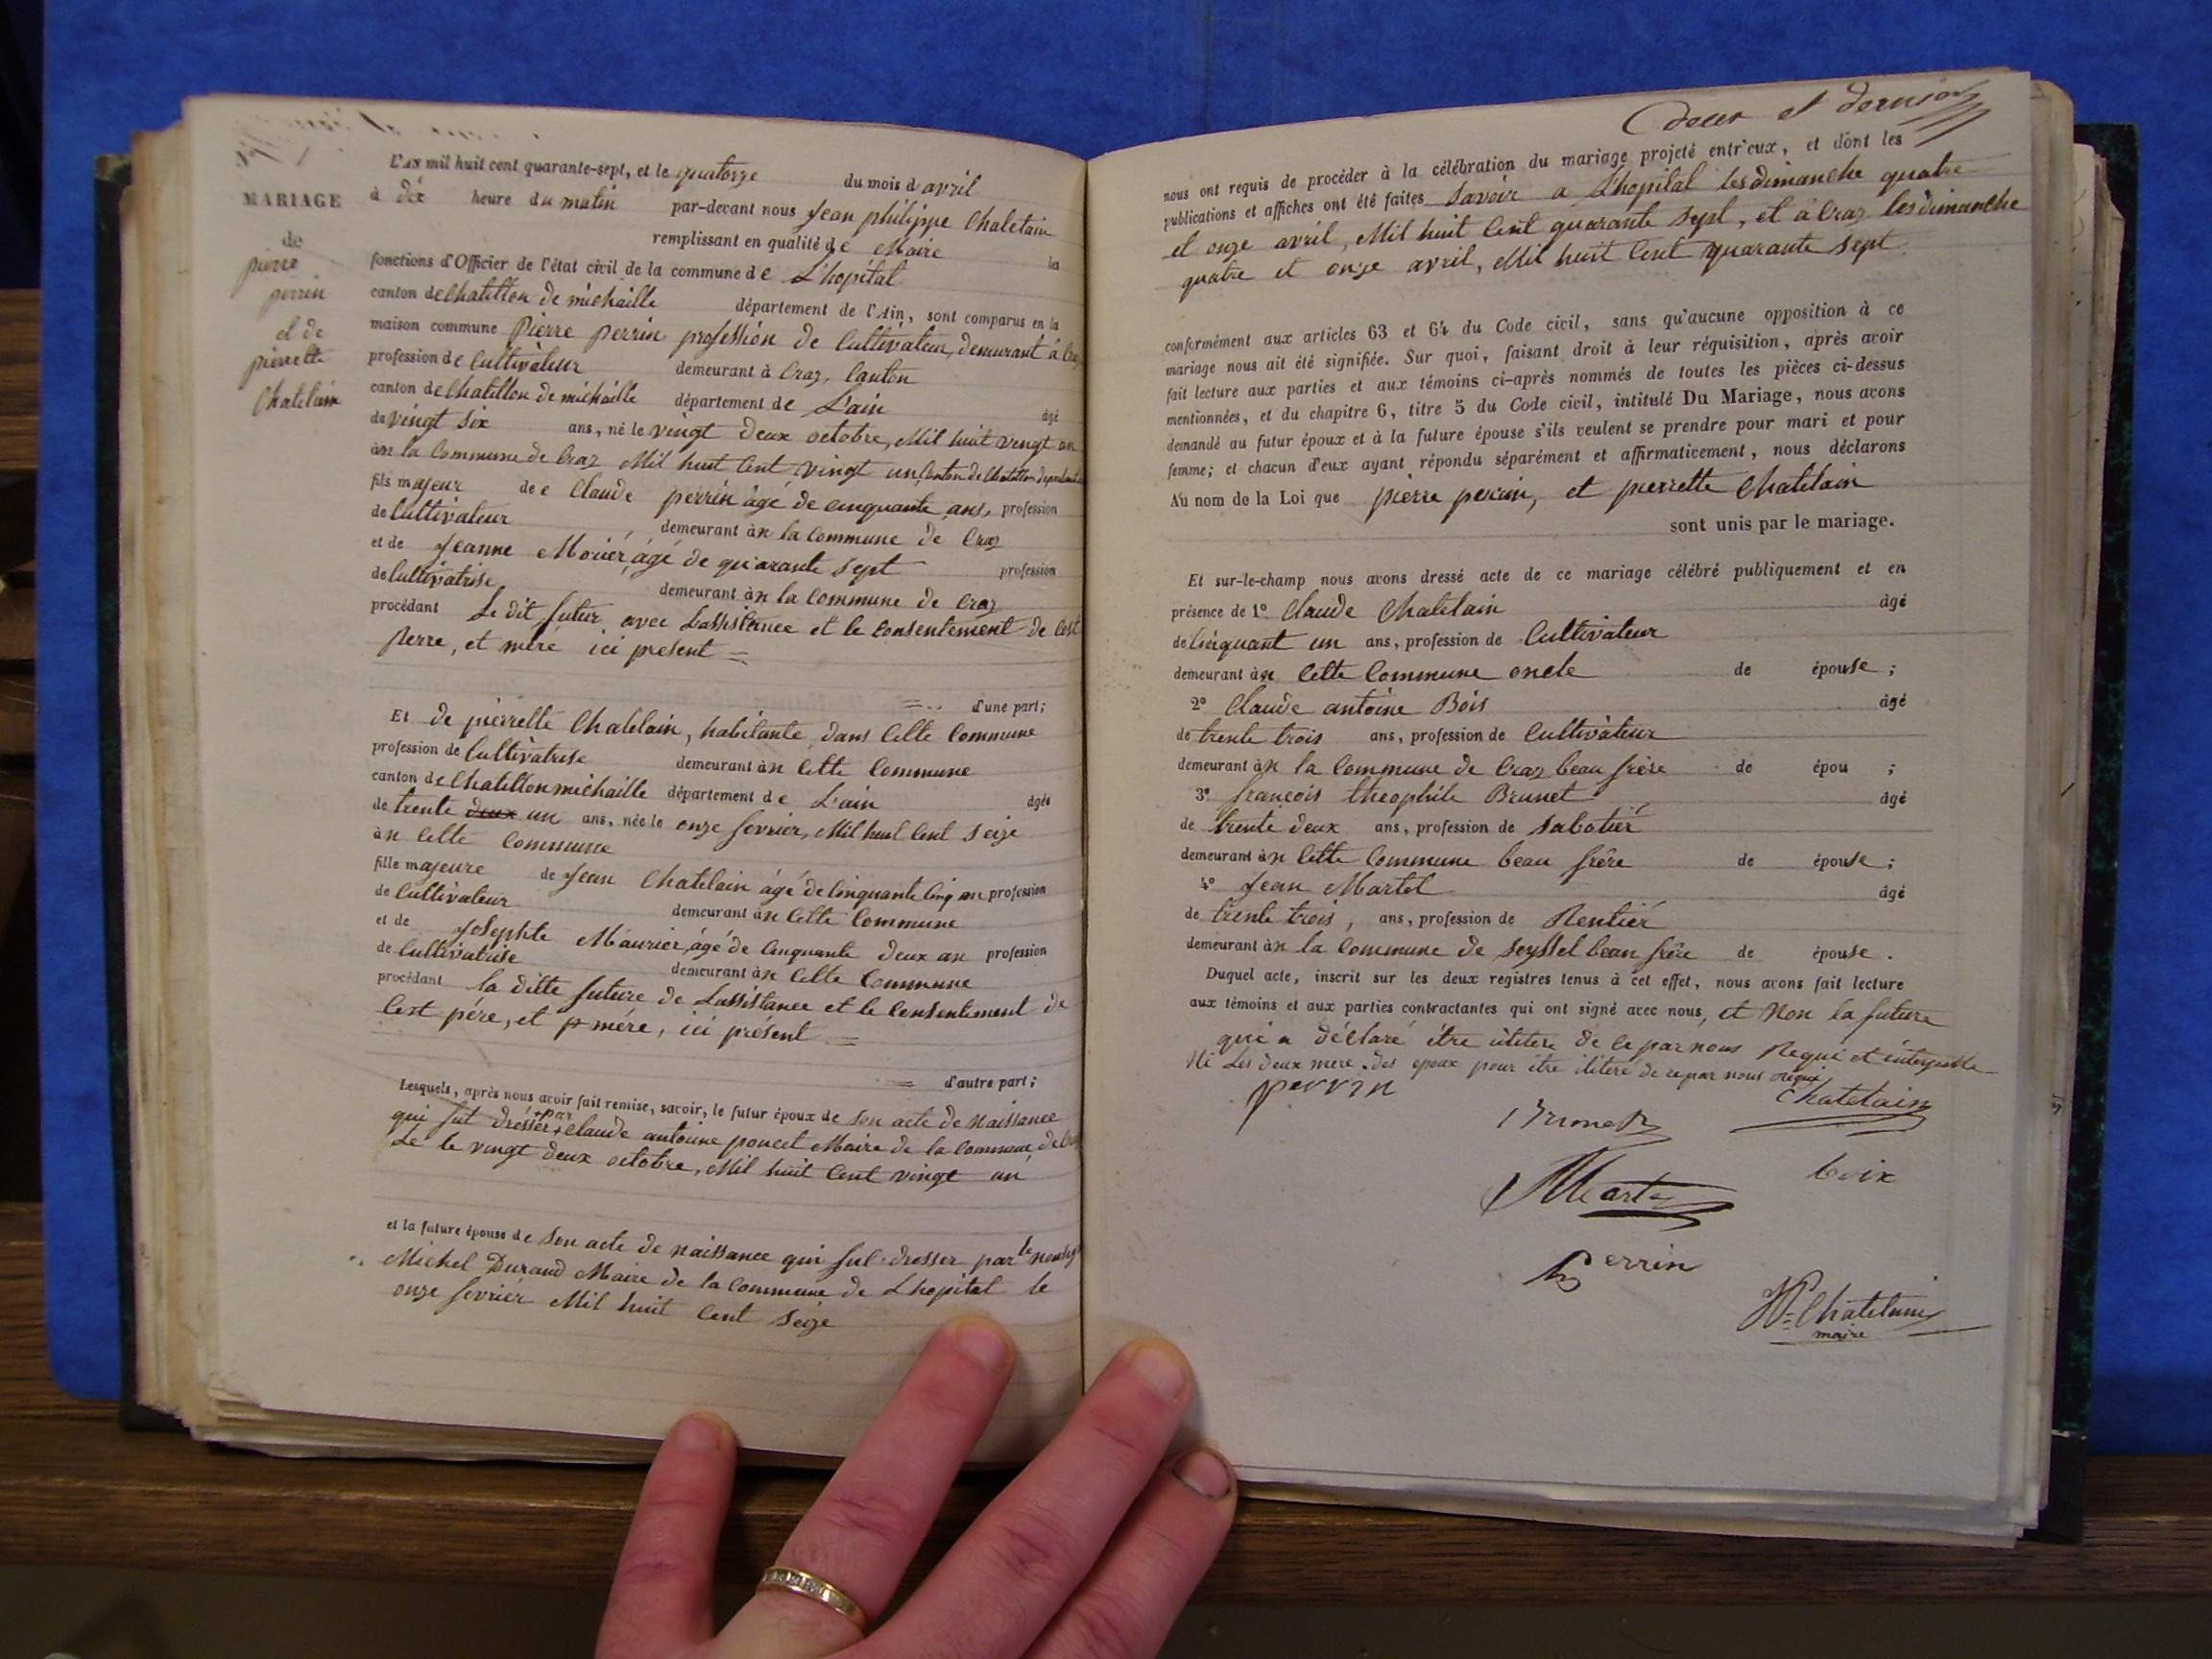 MARIAGE
de
pierre
perrin
et de
pierrette
Chatelain
L'AN mil huit cent quarante-sept, et le quatorze du mois d avril
à dix heure du matin par-devant nous Jean philippe Chatelain
remplissant en qualité de Maire les
fonctions d'Officier de l'état civil de la commune de L'hopital
canton de Chatillon de michaille département de l'Ain, sont comparus en la
maison commune Pierre perrin profession de Cultivateur, demeurant à Craz
profession de Cultivateur demeurant à Craz, Canton
canton de Chatillon de michaille département de L'ain âgé
de vingt six ans, né le vingt deux octobre, Mil huit vingt un
àn la Commune de Craz Mil huit Cent vingt un, Canton de Chatillon
fils majeur de e Claude perrin âgé de cinquante ans, profession
de Cultivateur demeurant àn la Commune de Craz
et de Jeanne Moriér, âgé de quarante sept profession
de Cultivatrise demeurant àn la Commune de Craz
procédant Le dit futur avec Lassistance et le Consentement de Cest
perre, et mére ici present =
d'une part;
Et de pierrette Chatelain, habitante dans Cette Commune
profession de Cultivatrise demeurant àn Cette Commune
canton de Chatillon michaille département de L'ain âgée
de trente deux un ans, née le onze fevrier, Mil huit Cent Seize
àn Cette Commune
fille majeure de Jean Chatelain âgé de Cinquante Cinq an profession
de Cultivateur demeurant àn Cette Commune
et de Josephte Maurier, âgé de Cinquante deux an profession
de Cultivatrise demeurant àn Cette Commune
procédant la ditte future de Lassistance et le Consentement de
Cest pére, et mére, ici présent =
= d'autre part;
Lesquels, après nous avoir fait remise, savoir, le futur époux de Son acte de Naissance
qui fut dresser par Claude antoine poncet Maire de la Commune de Craz
Le le vingt deux octobre, Mil huit Cent vingt un
et la future épouse de Son acte de naissance qui fut dresser par le
Michel Durand Maire de la Commune de Lhopital le
onze fevriér Mil huit Cent Seize
Deux et dernier
nous ont requis de procéder à la célébration du mariage projeté entr'eux, et dont les
publications et affiches ont été faites Savoir a L'hopital les dimanche quatre
et onze avril, Mil huit Cent quarante sept, et à Craz les dimanche
quatre et onze avril, Mil huit Cent quarante sept
conformément aux articles 63 et 64 du Code civil, sans qu'aucune opposition à ce
mariage nous ait été signifiée. Sur quoi, faisant droit à leur réquisition, après avoir
fait lecture aux parties et aux témoins ci-après nommés de toutes les pièces ci-dessus
mentionnées, et du chapitre 6, titre 5 du Code civil, intitulé Du Mariage, nous avons
demandé au futur époux et à la future épouse s'ils veulent se prendre pour mari et pour
femme; et chacun d'eux ayant répondu séparément et affirmativement, nous déclarons
Au nom de la Loi que pierre perrin, et pierrette Chatelain
sont unis par le mariage.
Et sur-le-champ nous avons dressé acte de ce mariage célébré publiquement et en
présence de 1° Claude Chatelain âgé
de Cinquant un ans, profession de Cultivateur
demeurant àn Cette Commune oncle de épouse ;
2° Claude antoine Bois âgé
de trente trois ans, profession de Cultivateur
demeurant àn la Commune de Craz beau frère de épou ;
3° françois théophile Brunet âgé
de trente deux ans, profession de Sabotiér
demeurant àn Cette Commune beau frère de épouse ;
4° Jean Martel âgé
de trente trois, ans, profession de Rentiér
demeurant àn la Commune de Seyssel beau frère de épouse .
Duquel acte, inscrit sur les deux registres tenus à cet effet, nous avons fait lecture
aux témoins et aux parties contractantes qui ont signé avec nous, et Non la future
qui a déclaré être ilitere de ce par nous Requi et interpellé
Ni Les deux mere des epoux pour être ilitere de ce par nous requi
perrin
Chatelain
Brunet
boix
Martel
perrin
JP Chatelain
maire